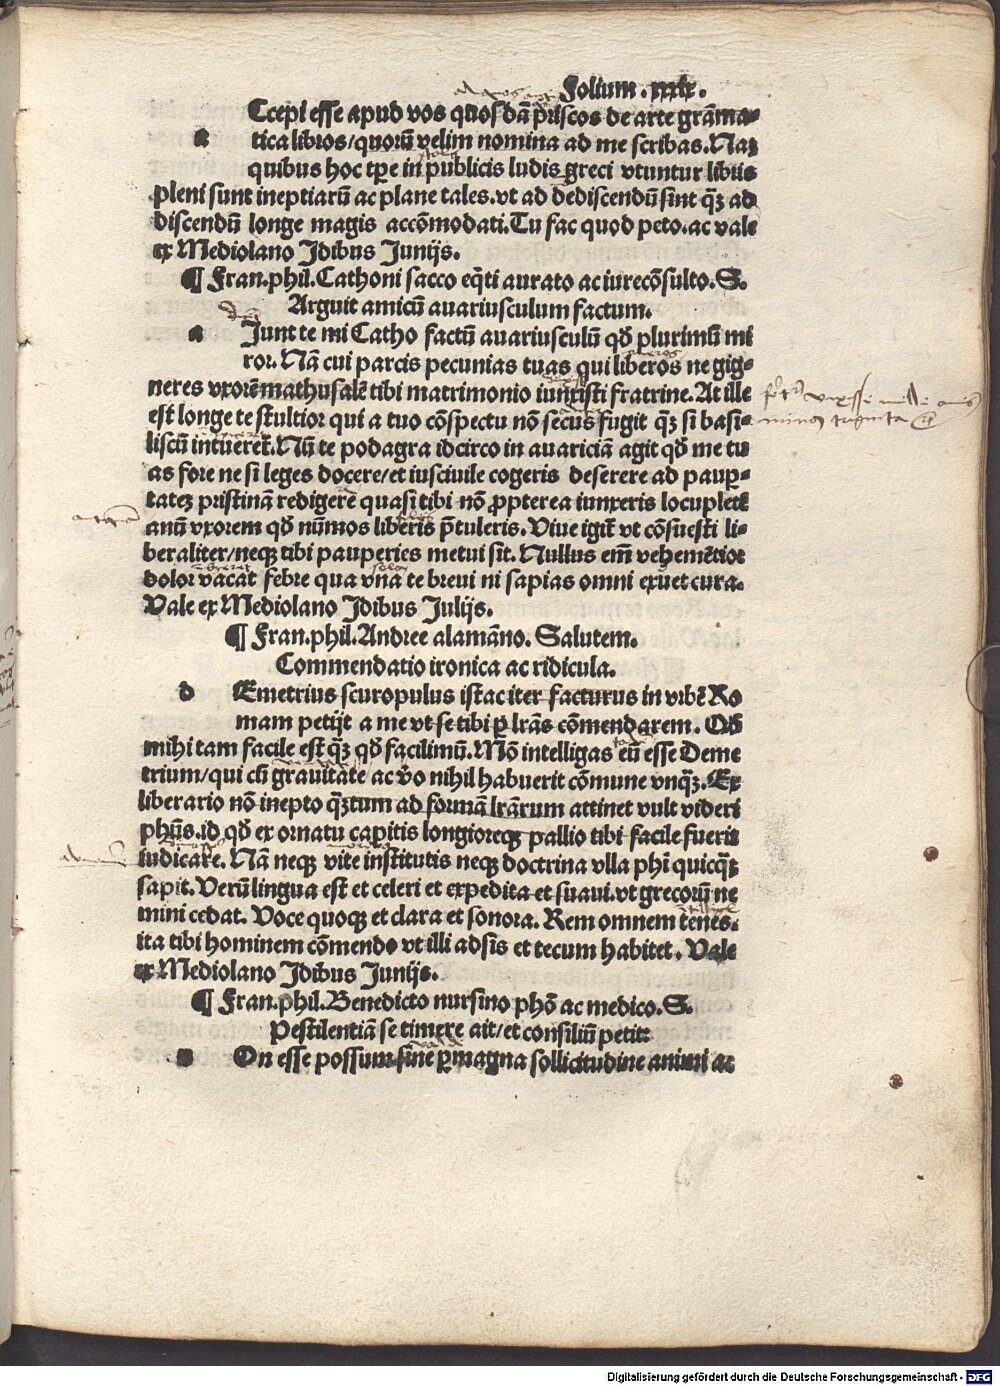 Folium .xxix.
a Ccepi esse apud vos quosdā priscos de arte grāma-
tica libros/quorū velim nomina ad me scribas. Naz
quibus hoc tꝑe in publicis ludis greci vtuntur libris
pleni sunt ineptiarū ac plane tales. vt ad dediscendū sint q̄ꝫ ad
discendū longe magis accōmodati. Tu fac quod peto. ac vale
ex Mediolano Idibus Junijs.
¶ Fran. phil. Cathoni sacco eq̄ti aurato ac iurecōsulto. S.
Arguit amicū auariusculum factum.
a Junt te mi Catho factū auariusculū qđ plurimū mi
ror. Nā cui parcis pecunias tuas qui liberos ne gig-
neres vxorē mathusalē tibi matrimonio iunxisti fratrine. At ille
est longe te stultior qui a tuo cōspectu nō secus fugit q̄ꝫ si basi-
liscū intueret̄. Nū te podagra idcirco in auariciā agit qđ me tu
as fore ne si leges docere/et iusciuile cogeris deserere ad pauꝑ-
tatez pristinā redigere quasi tibi nō ꝓpterea iunxeris locupletē
anū vxorem qđ nūmos liberis p̄tuleris. Viue igit̄ vt cōsuesti li-
beraliter/neqꝫ tibi pauperies metui sit. Nullus em̄ vehemētior
dolor vacat febre qua vna te breui ni sapias omni exuet cura.
Vale ex Mediolano Idibus Julijs.
¶ Fran. phil. Andree alamāno. Salutem.
Commendatio ironica ac ridicula.
d Emetrius scuropulus istac iter facturus in vrbē Ro
mam petijt a me vt se tibi ꝑ lr̄as cōmendarem. Qđ
mihi tam facile est q̄ꝫ qđ facilimū. Mō intelligas eū esse Deme
trium/qui cū grauitate ac vo nihil habuerit cōmune vnq̄ꝫ. Ex
liberario nō inepto q̄ꝫtum ad formā lr̄arum attinet vult videri
phūs. id qđ ex ornatu capitis longioreqꝫ pallio tibi facile fueris
iudicare. Nā neqꝫ vite institutis neqꝫ doctrina vlla phi quicq̄ꝫ
sapit. Verū lingua est et celeri et expedita et suaui. vt grecorū ne
mini cedat. Voce quoqꝫ et clara et sonora. Rem omnem tenes.
ita tibi hominem cōmendo vt illi adsis et tecum habitet. Vale
ex Mediolano Idibus Junijs.
¶ Fran. phil. Benedicto nursino phō ac medico. S.
Pestilentiā se timere ait/et consiliū petit:
n On esse possum sine ꝑmagna sollicitudine animi ac
Digitalisierung gefördert durch die Deutsche Forschungsgemeinschaft - DFG